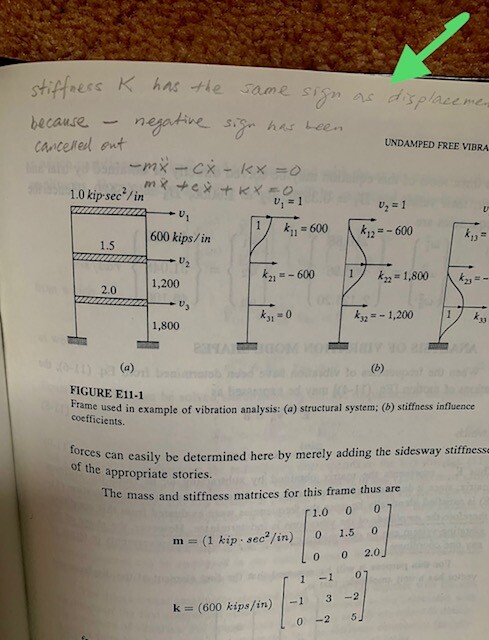 stiffness K has the same sign as displacemen
because – negative sign has been
cancelled out
UNDAMPED FREE VIBRA
-mẍ - cẋ - kx = 0
mẍ + cẋ + kx = 0
1.0 kip·sec²/in
v₁
600 kips/in
1.5
v₂
1,200
2.0
v₃
1,800
v₁ = 1
1
k₁₁ = 600
k₂₁ = – 600
k₃₁ = 0
v₂ = 1
k₁₂ = – 600
1
k₂₂ = 1,800
k₃₂ = – 1,200
k₁₃ =
k₂₃ = –
1
k₃₃
(a)
(b)
FIGURE E11-1
Frame used in example of vibration analysis: (a) structural system; (b) stiffness influence
coefficients.
forces can easily be determined here by merely adding the sidesway stiffnesse
of the appropriate stories.
The mass and stiffness matrices for this frame thus are
m = (1 kip · sec²/in) [1.0 0 0
0 1.5 0
0 0 2.0]
k = (600 kips/in) [1 –1 0
–1 3 –2
0 –2 5]